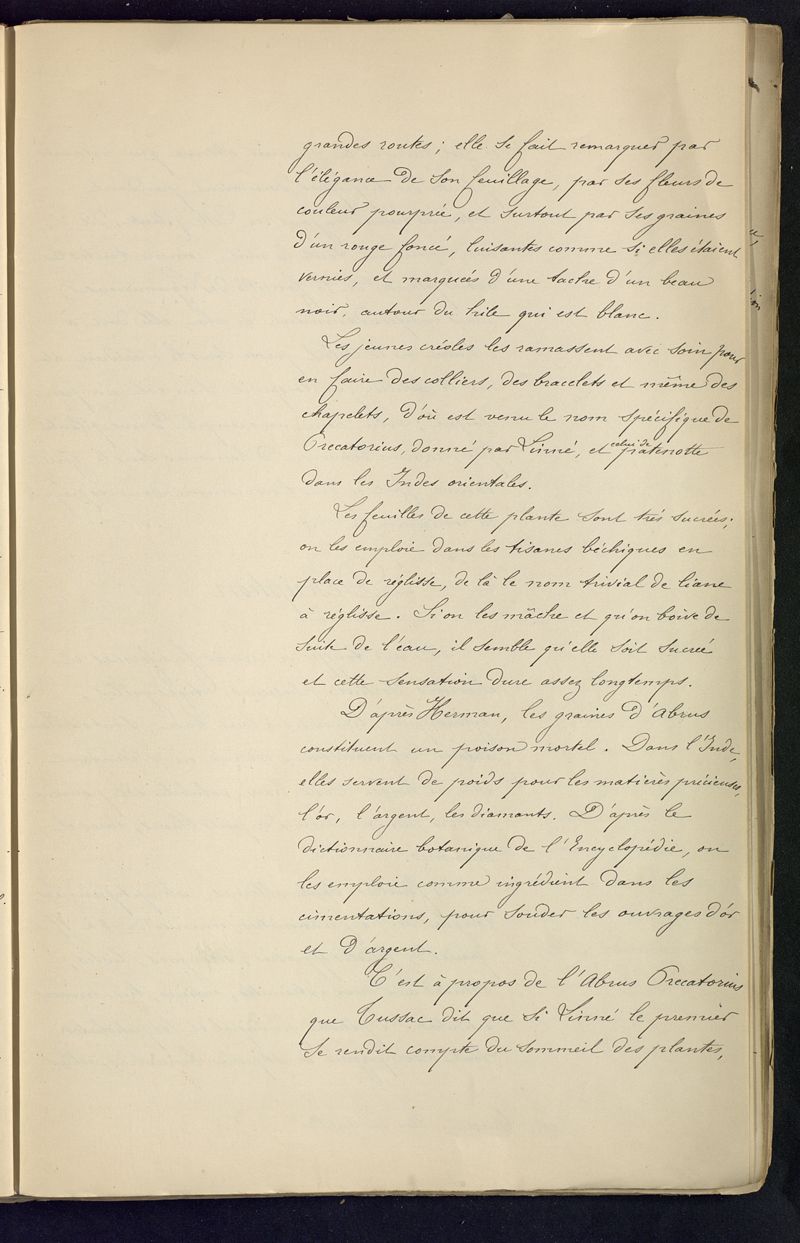 grandes routes; elle se fait remarquer par
l'élégance de son feuillage, par ses fleurs de
couleur pourprée, et surtout par ses graines
d'un rouge foncé, luisantes comme si elles étaient
vernies, et marquées d'une tache d'un beau
noir, autour du hile qui est blanc.
Les jeunes créoles les ramassent avec soin pour
en faire des colliers, des bracelets et même des
chapelets, d'où est venu le nom spécifique de
Precatorius, donné par Linné, et celui de patenotte
dans les Indes orientales.
Les feuilles de cette plante sont très sucrées;
on les emploie dans les tisanes béchiques en
place de réglisse, de là le nom trivial de liane
à réglisse. Si on les mâche et qu'on boive de
suite de l'eau, il semble qu'elle soit sucrée
et cette sensation dure assez longtemps.
D'après Herman, les graines d'Abrus
constituent un poison mortel. Dans l'Inde,
elles servent de poids pour les matières précieuses,
l'or, l'argent, les diamants. D'après le
dictionnaire botanique de l'Encyclopédie, on
les emploie comme ingrédient dans les
cimentations, pour souder les ouvrages d'or
et d'argent.
C'est à propos de l'Abrus Precatorius
que Tussac dit que si Linné le premier
se rendit compte du sommeil des plantes,